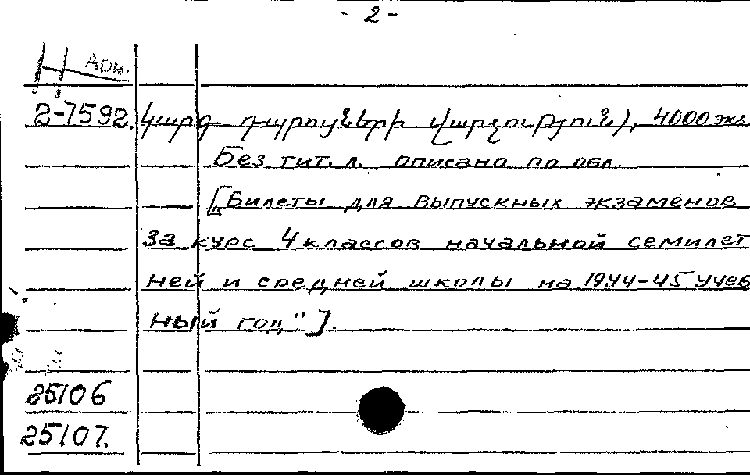 - 2 -
Арм.
2-7592. կարգ դպրոցների վարչություն), 4000 экз
Без тит. л. описано по обл.
[„Билеты для выпускных экзаменов
за курс 4 классов начальной семилет
ней и средней школы на 1944-45 учеб
ный год"].
25106
25107.